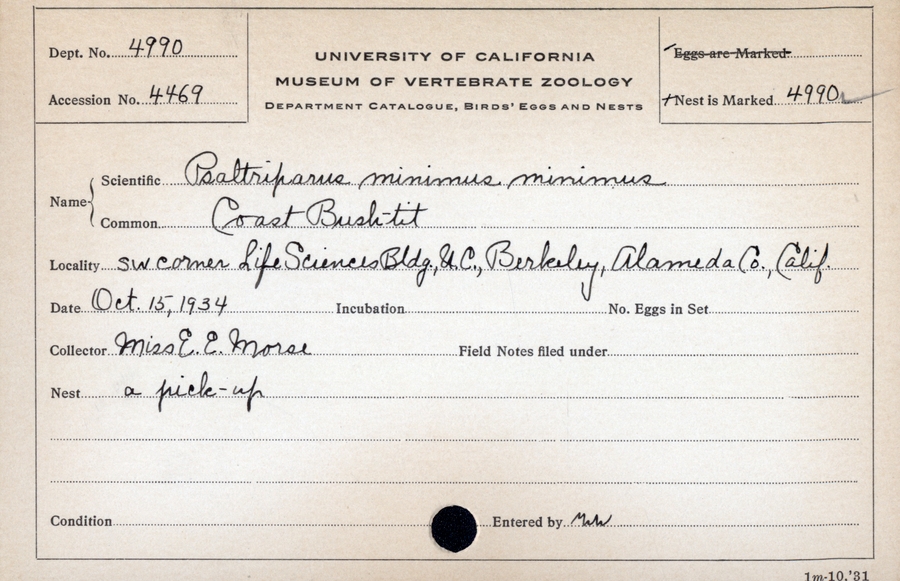 Dept. No. 4990
Accession No. 4469
UNIVERSITY OF CALIFORNIA
MUSEUM OF VERTEBRATE ZOOLOGY
DEPARTMENT CATALOGUE, BIRDS' EGGS AND NESTS
Eggs are Marked
Nest is Marked 4990
Name
Scientific Psaltriparus minimus minimus
Common Coast Bush-tit
Locality SW corner Life Sciences Bldg., U.C., Berkeley, Alameda Co., Calif.
Date Oct. 15, 1934 Incubation No. Eggs in Set
Collector Miss E. E. Morse Field Notes filed under
Nest a pick-up
Condition Entered by
1m-10.'31